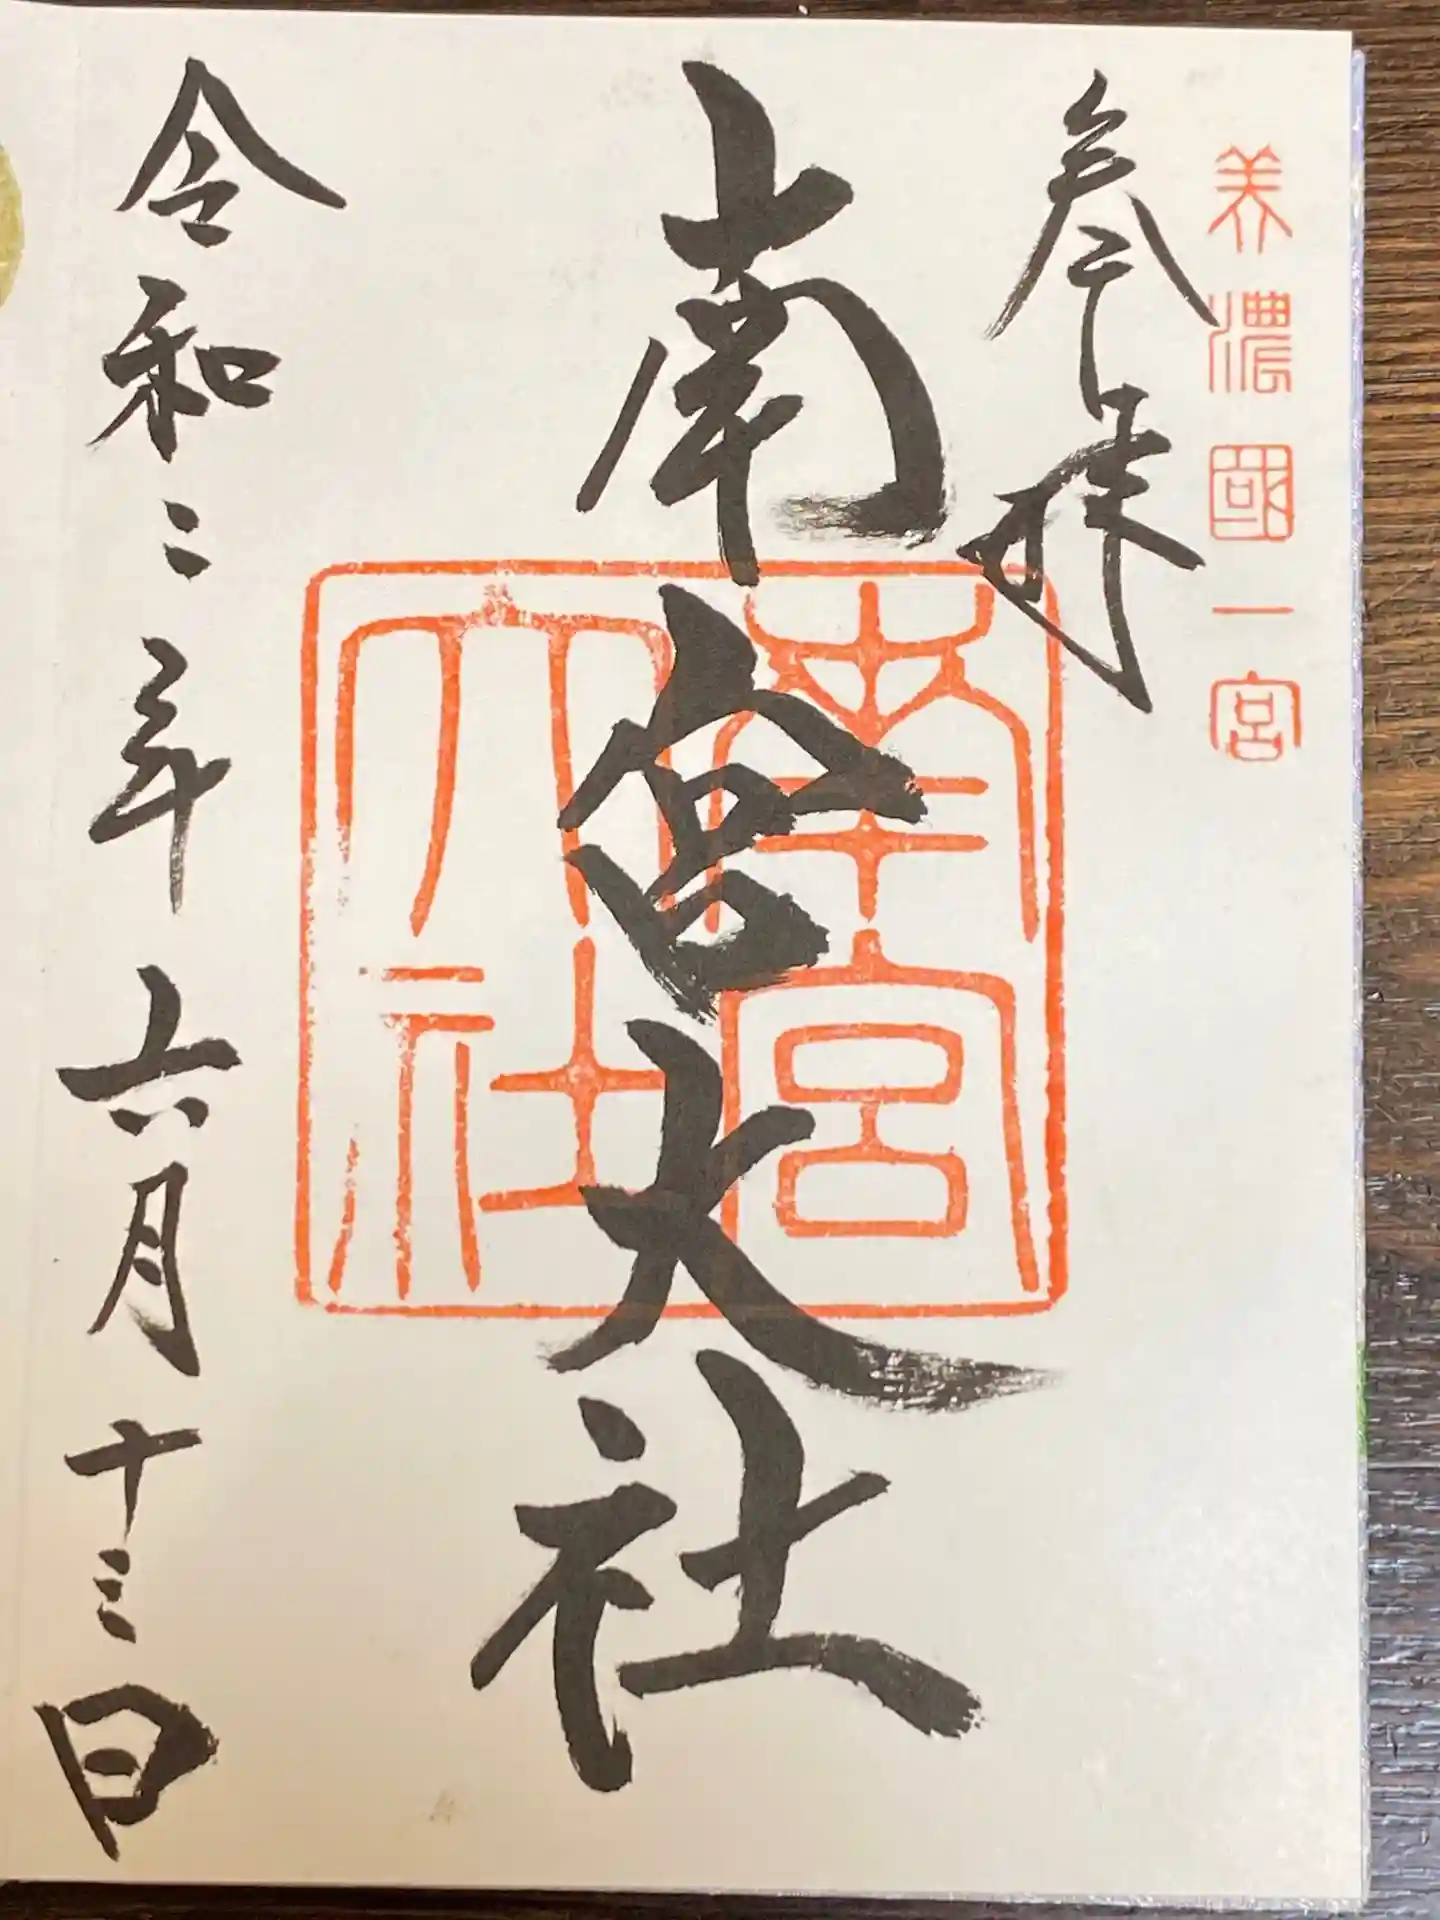 美濃國一宮
奉拝
南宮大社
南宮
大社
令和二年六月十三日